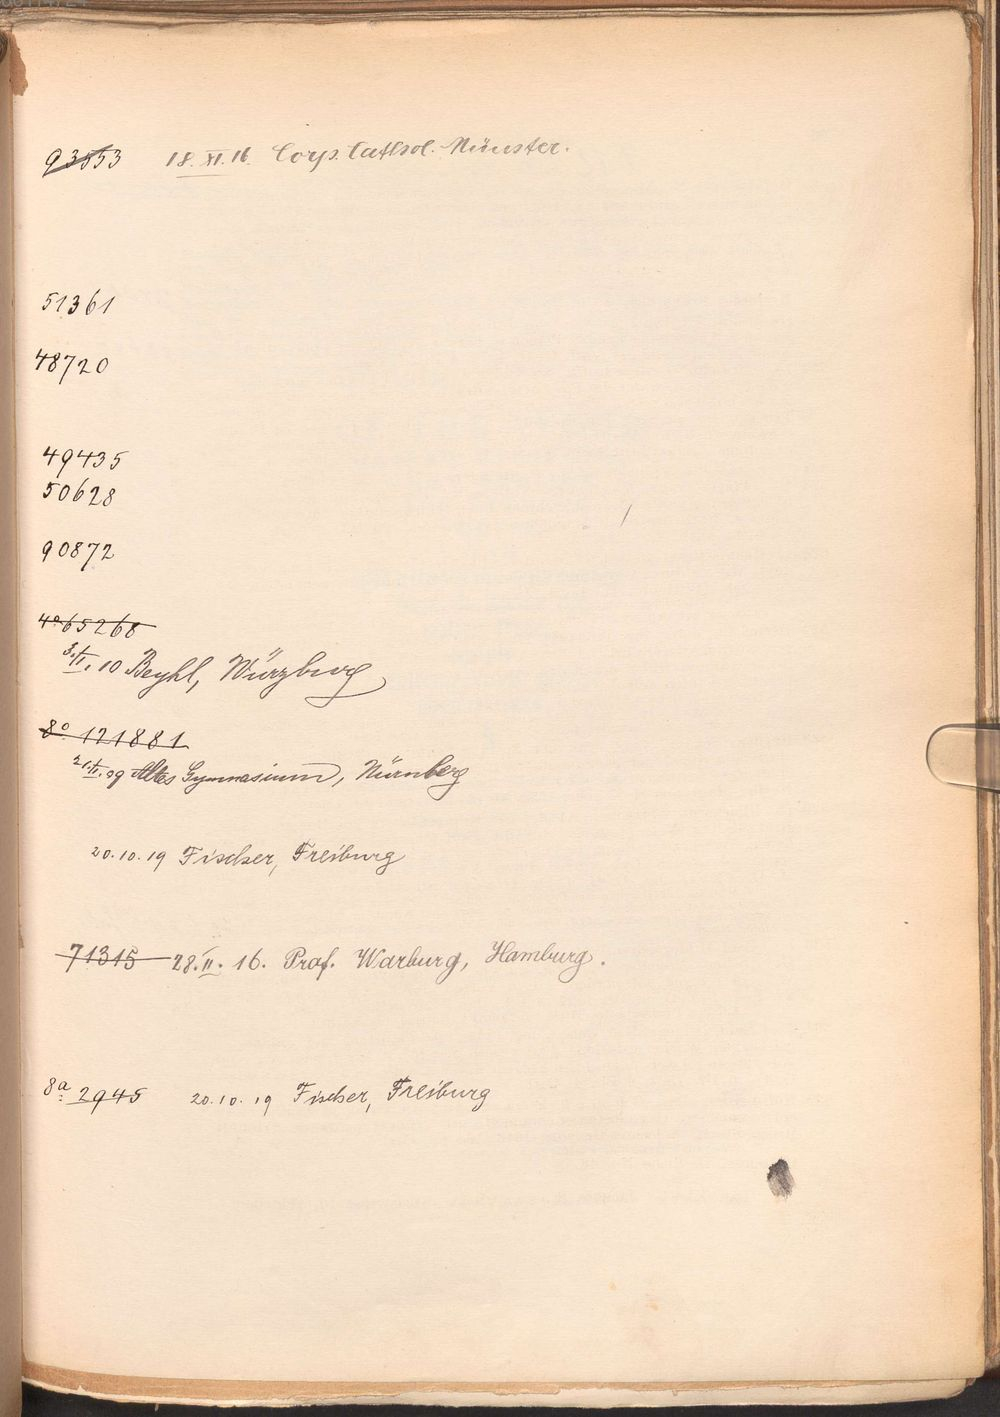 93553 18.XI.16. Corp. Cathol. Münster.
51361
48720
49435
50628
90872
4° 65268
3.II.10 Beyhl, Würzburg
8° 121881
21.II.09 Altes Gymnasium, Nürnberg
20.10.19 Fischer, Freiburg
71315 28.II.16. Prof. Warburg, Hamburg.
8a 2945 20.10.19 Fischer, Freiburg